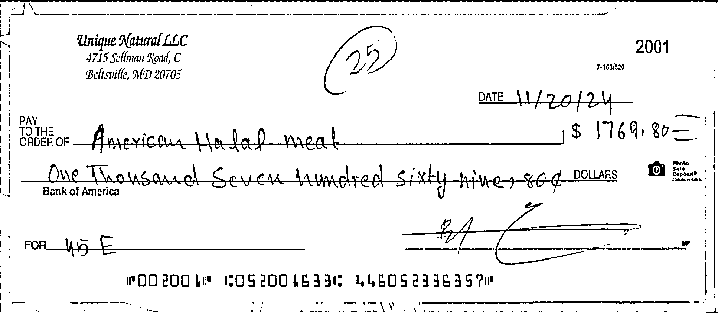 Unique Natural LLC
4715 Sellman Road, C
Beltsville, MD 20705
25
2001
7-163/520
DATE 11/20/24
PAY
TO THE
ORDER OF American Halal meat $ 1769.80
One Thousand Seven hundred sixty nine, 80¢ DOLLARS
Photo
Safe
Deposit®
Bank of America
FOR 45 E
MP
⑈002001⑈ ⑆052001633⑆ 446052336357⑈